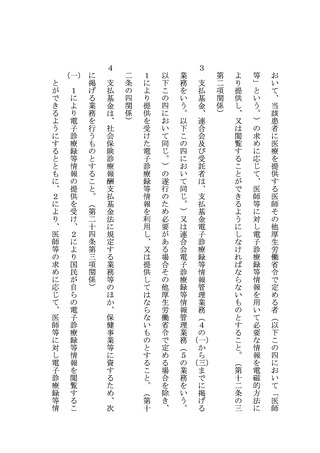 おいて、当該患者に医療を提供する医師その他厚生労働省令で定める者（以下この四において「医師
等」という。）の求めに応じて、医師等に対し電子診療録等情報を用いて必要な情報を電磁的方法に
より提供し、又は閲覧することができるようにしなければならないものとすること。（第十二条の三
第二項関係）
３　支払基金、連合会及び受託者は、支払基金電子診療録等情報管理業務（４の㈠から㈢までに掲げる
業務をいう。以下この四において同じ。）又は連合会電子診療録等情報管理業務（５の業務をいう。
以下この四において同じ。）の遂行のため必要がある場合その他厚生労働省令で定める場合を除き、
１により提供を受けた電子診療録等情報を利用し、又は提供してはならないものとすること。（第十
二条の四関係）
４　支払基金は、社会保険診療報酬支払基金法に規定する業務等のほか、保健事業等に資するため、次
に掲げる業務を行うものとすること。（第二十四条第三項関係）
㈠　１により電子診療録等情報の提供を受け、２により国民が自らの電子診療録等情報を閲覧するこ
とができるようにするとともに、２により、医師等の求めに応じて、医師等に対し電子診療録等情